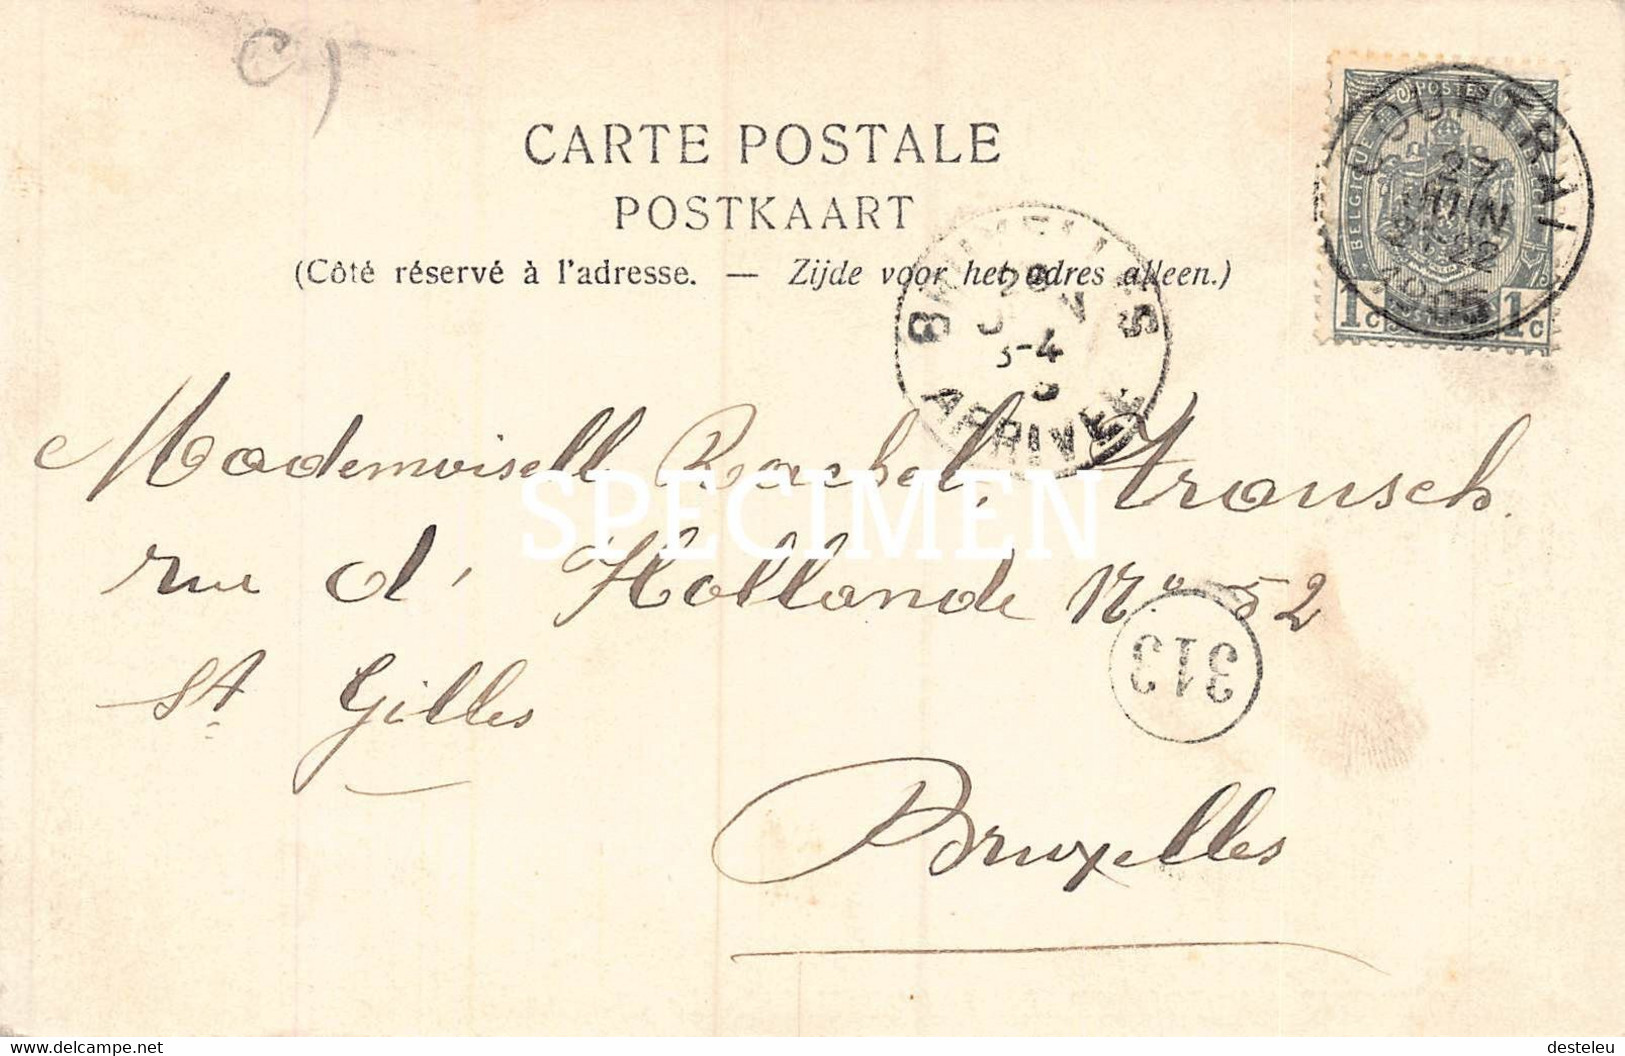 CARTE POSTALE
POSTKAART
(Côté réservé à l'adresse. — Zijde voor het adres alleen.)
POSTES
BELGIQUE
1c 1c
COURTRAI
27
JUIN
21-22
1905
BRUXELLES
3-4
ARRIVEE
Mademoisell Rachel
rue d' Hollande No 52
St Gilles
313
Bruxelles
SPECIMEN
www.delcampe.net
desteleu